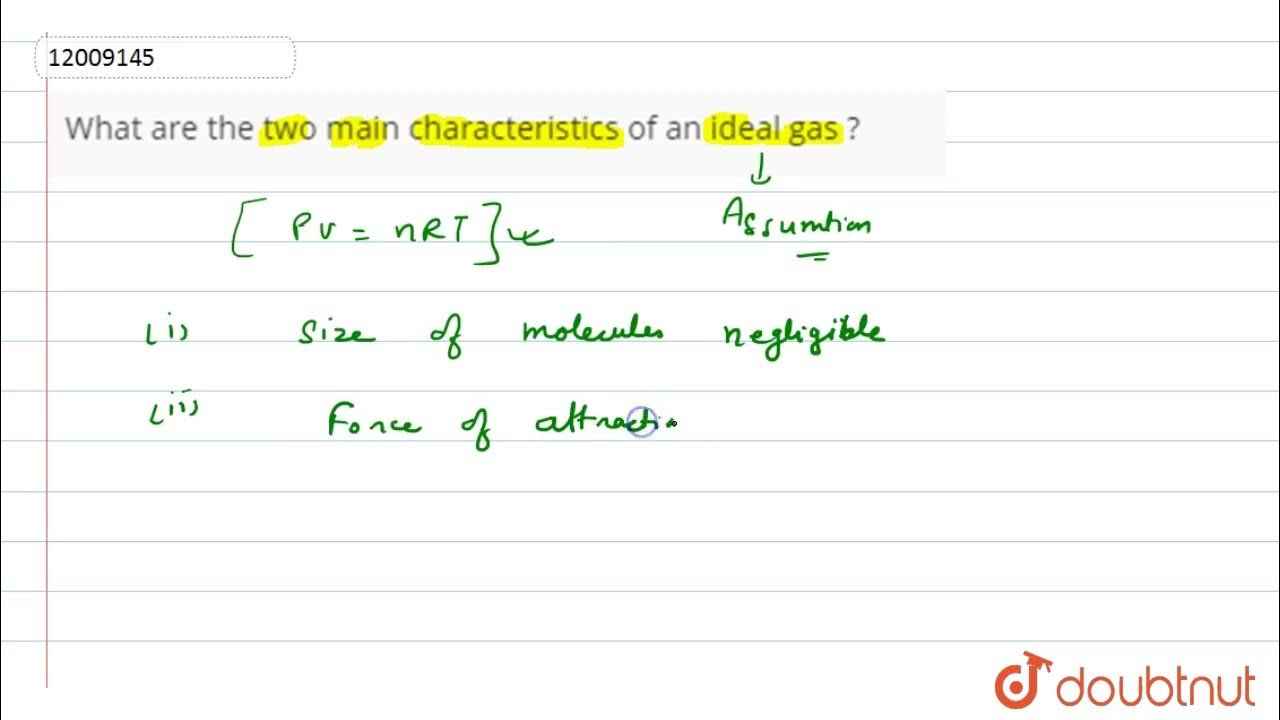 12009145
What are the two main characteristics of an ideal gas ?
[ PV = nRT ]
Assumtion
(i) Size of molecules negligible
(ii) Force of attracti
doubtnut